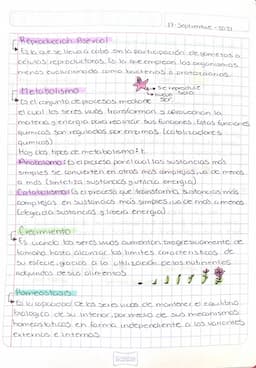 17-Septiembre-2021
Reproducción Asexual
Es la que se lleva a cabo sin la participación de gametos o
células reproductoras. Es la que emplean los organismos
menos evolucionados como bacterias o protozoarios.
Metabolismo
Se reproduce
Es el conjunto de procesos mediante
el cual los seres vivos transforman y aprovechan la
materia y energía para realizar sus funciones. Estas funciones
químicas son reguladas por enzimas. (catalizadores
químicos)
Hay dos tipos de metabolismo:
Anabolismo: Es el proceso por el cual las sustancias más
simples se convierten en otras más complejas, va de menos
a más (sintetiza sustancias y utiliza energía)
Catabolismo: Es el proceso que transforma sustancias más
complejas en sustancias más simples, va de más a menos
(degrada sustancias y libera energía)
Crecimiento
Es cuando los seres vivos aumentan progresivamente de
tamaño hasta alcanzar los límites característicos de
su especie, gracias a la utilización de los nutrientes
adquiridos de sus alimentos
Homeostasis
Es la capacidad de los seres vivos de mantener el equilibrio
biológico de su interior, por medio de sus mecanismos
homeostáticos en forma independiente a las variantes
externas e internas.